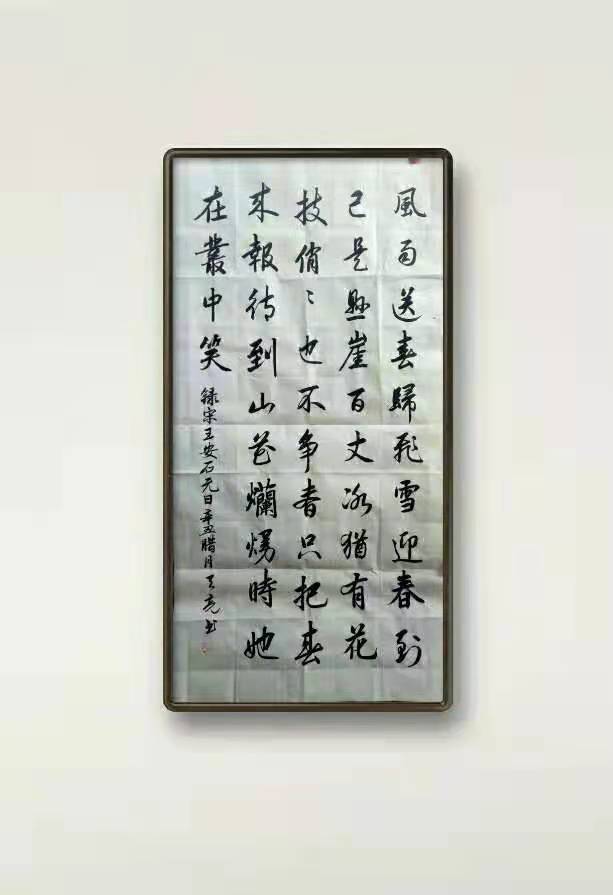 風雨送春歸飛雪迎春到
已是懸崖百丈冰猶有花
技俏〻也不争春只把春
来報待到山花爛熳時她
在叢中笑
録宋王安石元日辛丑腊月王亮书